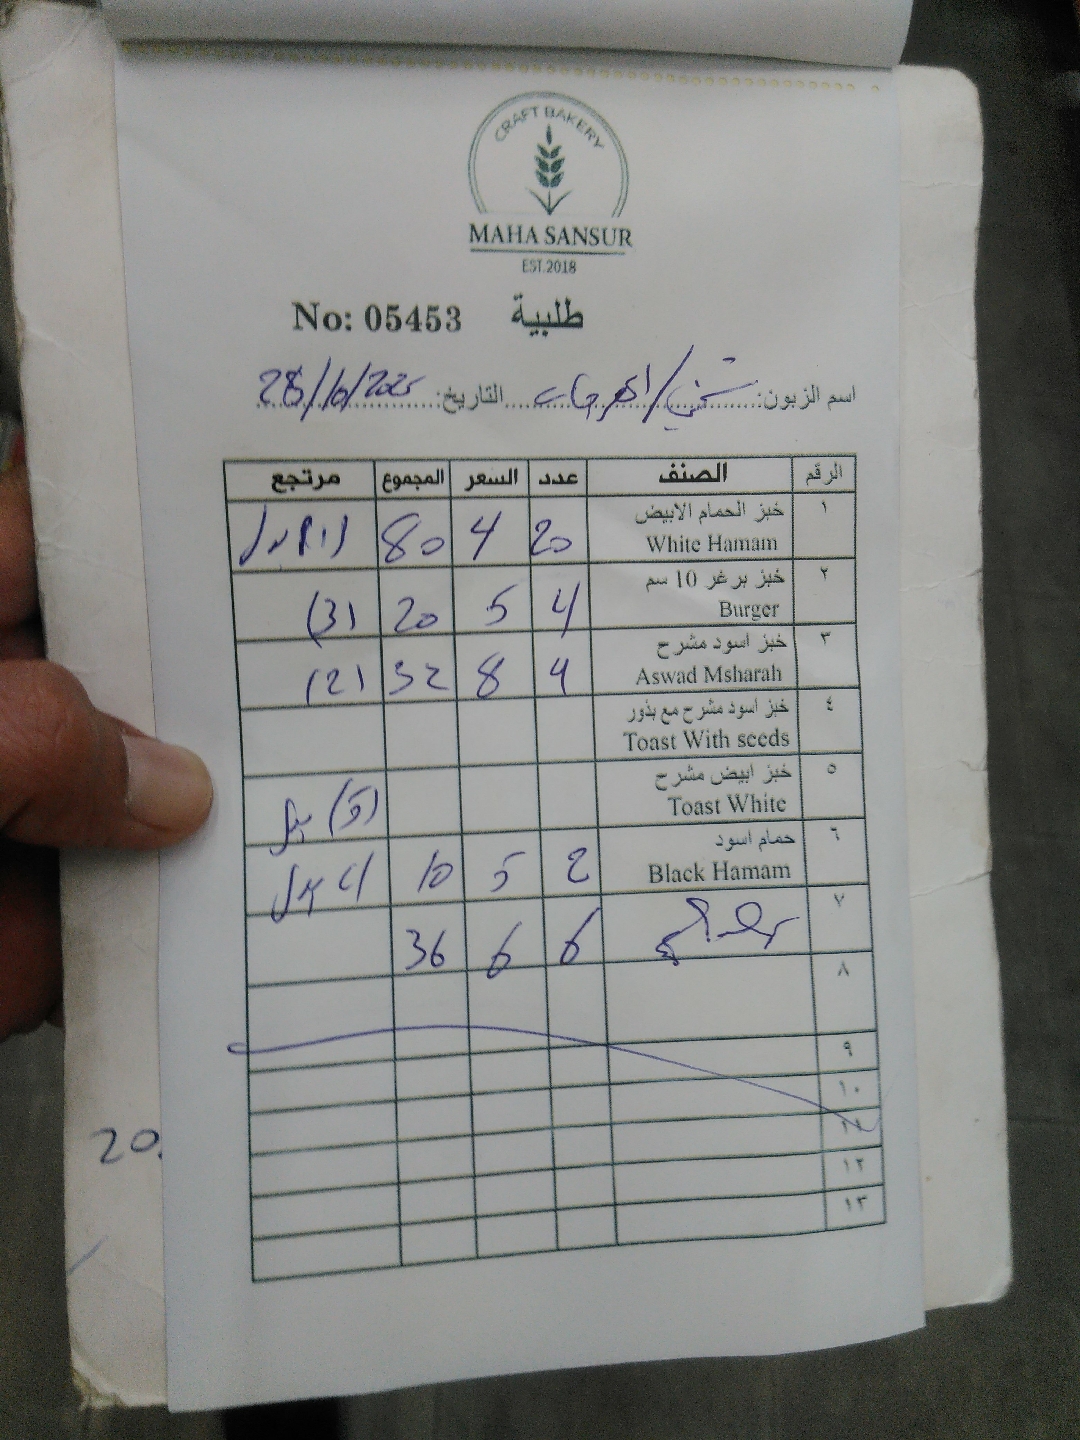 CRAFT BAKERY
MAHA SANSUR
EST.2018
No: 05453 طلبية
اسم الزبون: التاريخ: 28/10/2025
الرقم الصنف عدد السعر المجموع مرتجع
١ خبز الحمام الابيض White Hamam 20 4 80
٢ خبز برغر 10 سم Burger 4 5 20 (3)
٣ خبز اسود مشرح Aswad Msharah 4 8 32 (2)
٤ خبز اسود مشرح مع بذور Toast With seeds
٥ خبز ابيض مشرح Toast White (5)
٦ حمام اسود Black Hamam 2 5 10
٧ 6 6 36
٨
٩
١٠
١١
١٢
١٣
20